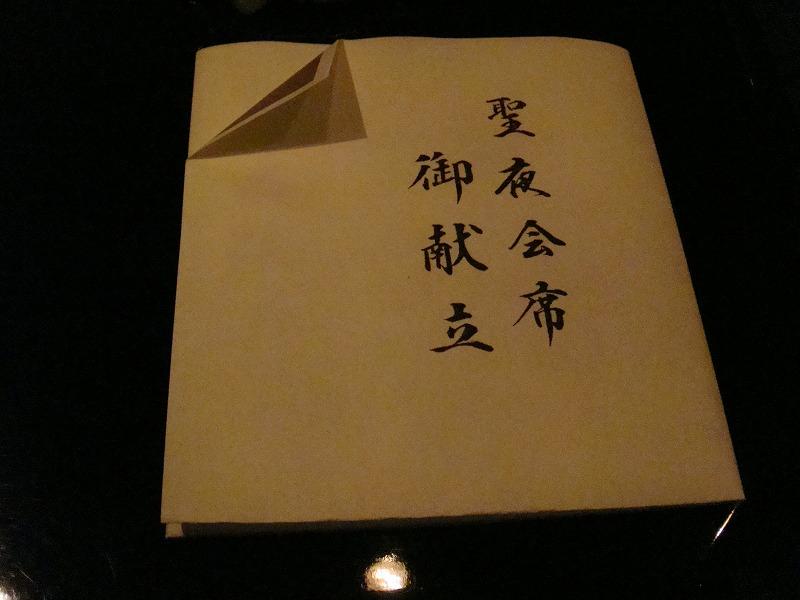 聖夜会席
御献立